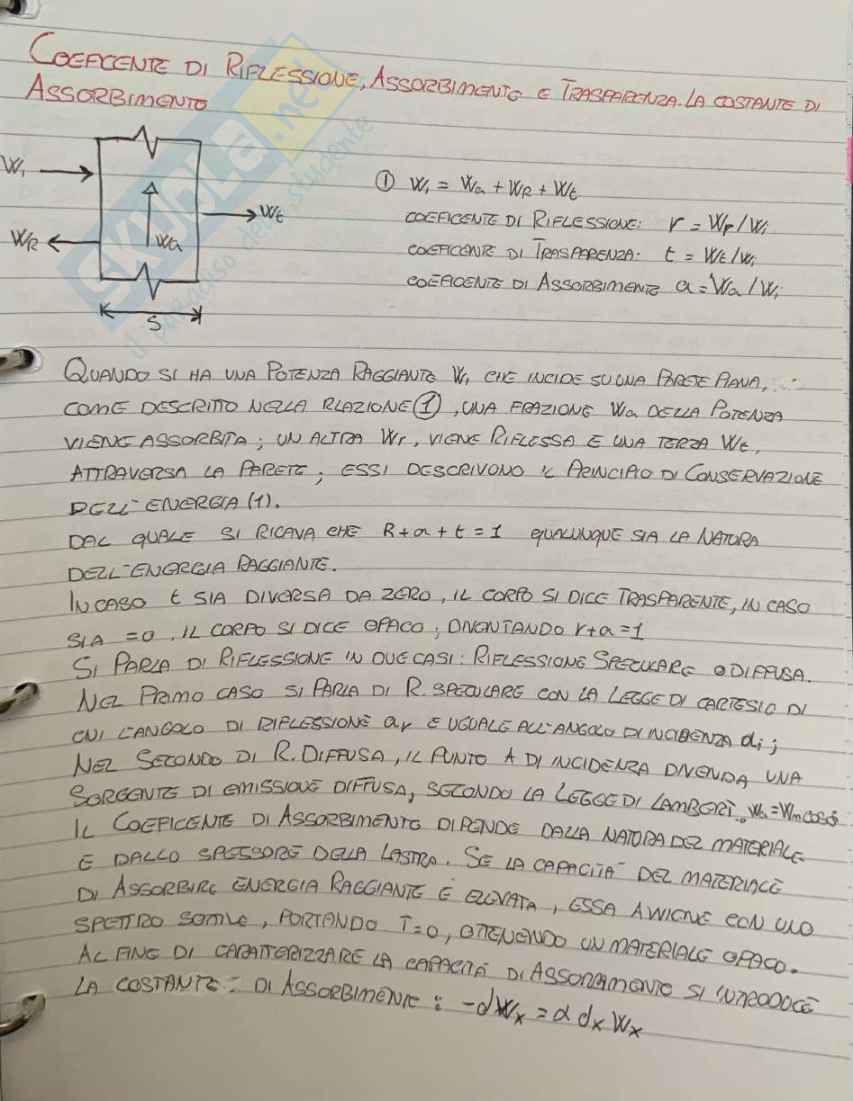 COEFICENTE DI RIFLESSIONE, ASSORBIMENTO E TRASPARENZA. LA COSTANTE DI
ASSORBIMENTO
W₁
WR
Wa
Wt
S
① W₁ = Wa + WR + Wt
COEFICENTE DI RIFLESSIONE: r = Wr/Wi
COEFICENTE DI TRASPARENZA: t = Wt/Wi
COEFICENTE DI ASSORBIMENTO a = Wa/Wi
QUANDO SI HA UNA POTENZA RAGGIANTE W₁ CHE INCIDE SU UNA PARETE PIANA,
COME DESCRITTO NELLA RLAZIONE ①, UNA FRAZIONE Wa DELLA POTENZA
VIENE ASSORBITA; UN ALTRA Wr, VIENE RIFLESSA E UNA TERZA Wt,
ATTRAVERSA LA PARETE; ESSI DESCRIVONO IL PRINCIPIO DI CONSERVAZIONE
DELL'ENERGIA (1).
DAL QUALE SI RICAVA CHE R+a+t=1 QUALUNQUE SIA LA NATURA
DELL'ENERGIA RAGGIANTE.
IN CASO t SIA DIVERSA DA ZERO, IL CORPO SI DICE TRASPARENTE, IN CASO
SIA =0, IL CORPO SI DICE OPACO, DIVENTANDO r+a=1
SI PARLA DI RIFLESSIONE IN DUE CASI: RIFLESSIONE SPECULARE O DIFFUSA.
NEL PRIMO CASO SI PARLA DI R. SPECULARE CON LA LEGGE DI CARTESIO DI
CUI L'ANGOLO DI RIFLESSIONE ar E UGUALE ALL'ANGOLO DI INCIDENZA di;
NEL SECONDO DI R. DIFFUSA, IL PUNTO A DI INCIDENZA DIVENDA UNA
SORGENTE DI EMISSIONE DIFFUSA, SECONDO LA LEGGE DI LAMBERT.
IL COEFICENTE DI ASSORBIMENTO DIPENDE DALLA NATURA DEL MATERIALE
E DALLO SPESSORE DELLA LASTRA. SE LA CAPACITA' DEL MATERIALE
DI ASSORBIRE ENERGIA RAGGIANTE È ELEVATA, ESSA AVVIENE CON UNO
SPETTRO SOTTILE, PORTANDO T=0, OTTENENDO UN MATERIALE OPACO.
AL FINE DI CARATTERIZZARE LA CAPACITÀ DI ASSORBIMENTO SI INTRODUCE
LA COSTANTE DI ASSORBIMENTE: -dWx = α dx Wx
SKUOLA.net
il paradiso dello studente